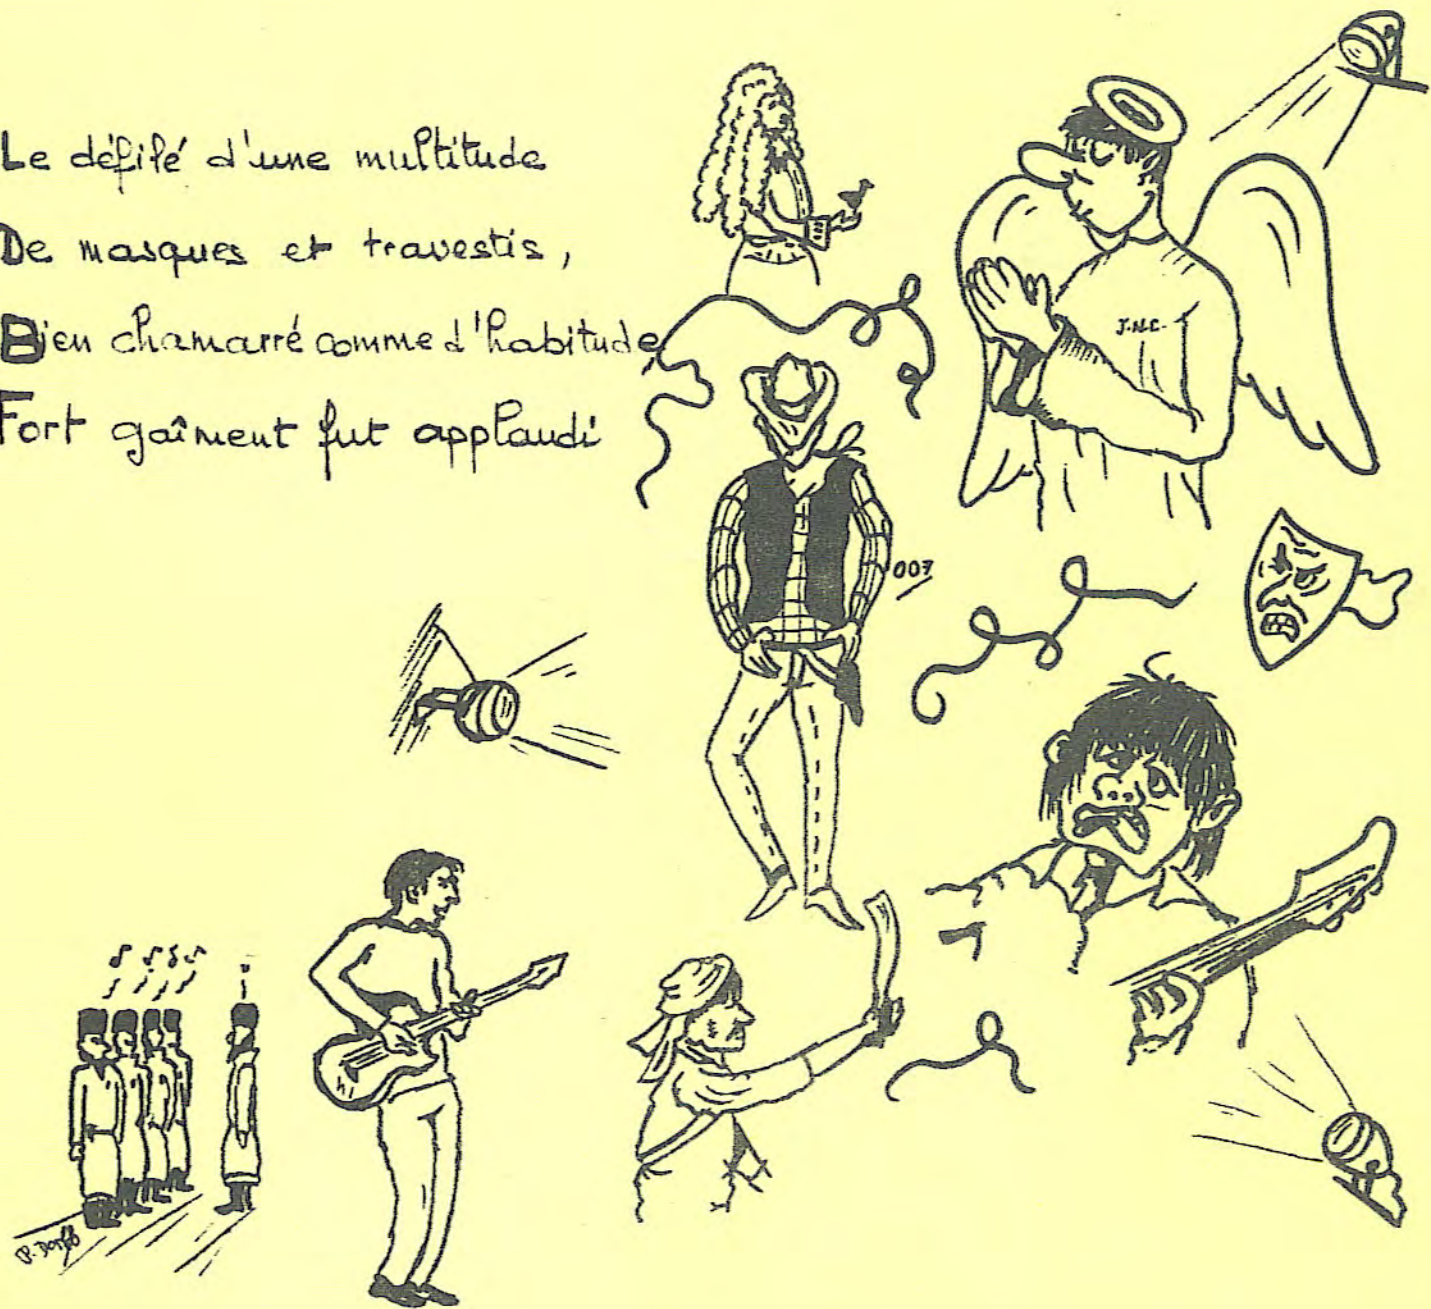 Le défilé d'une multitude
De masques et travestis,
Bien chamarré comme d'habitude,
Fort gaîment fut applaudi
J.N.C.
007